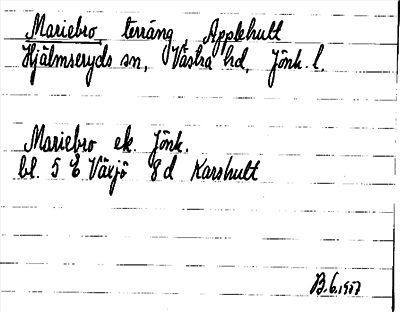 Mariebro, terräng, Applehult
Hjälmseryds sn, Västra hd, Jönk. l.
Mariebro ek. Jönk.
bl. 5 E Växjö 8 d Karshult
B. 6. 1957